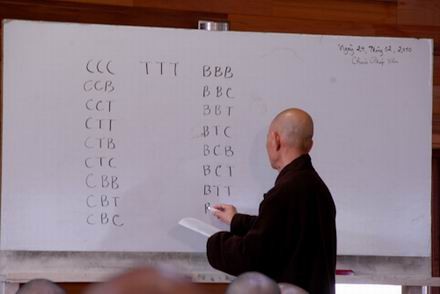 Ngày 24, Tháng 02, 2010
CCC TTT BBB
CCB BBC
CCT BBT
CTT BTC
CTB BCB
CTC BCT
CBB BTT
CBT B
CBC